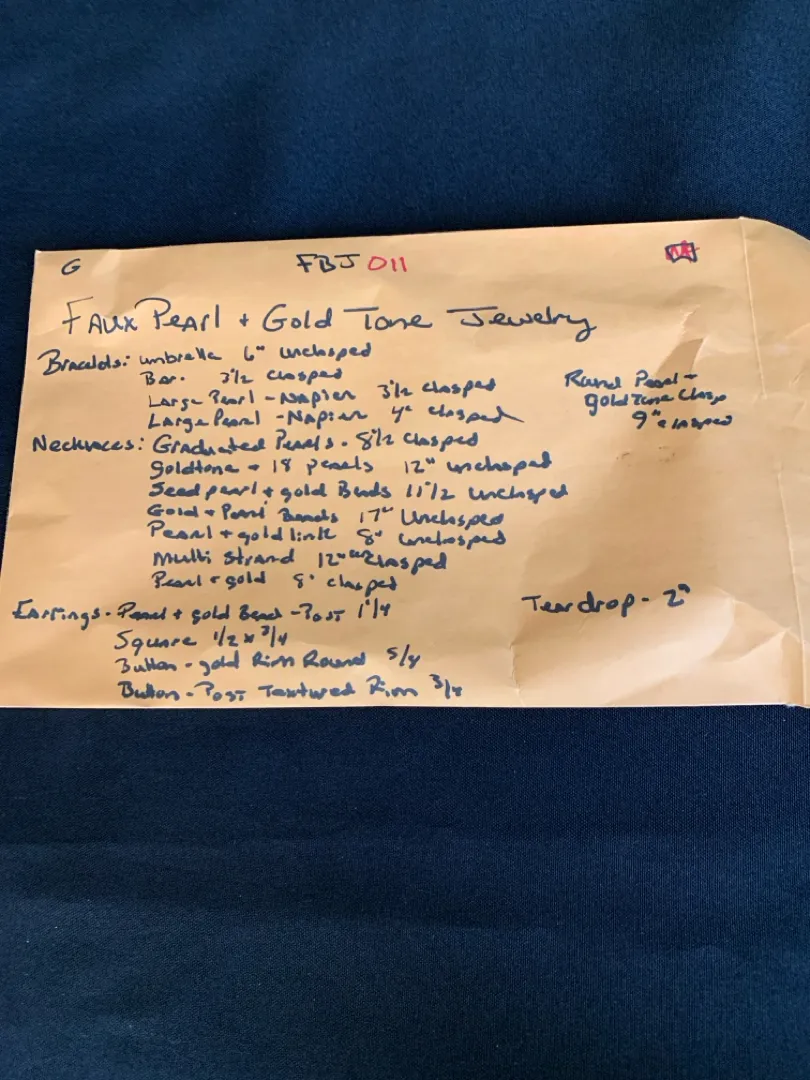 G FBJ 011
Faux Pearl + Gold Tone Jewelry
Bracelets: umbrella 6" unclasped
Bar. 3 1/2 clasped
Large Pearl - Napier 3 1/2 clasped
Large Pearl - Napier 4" clasped
Round Pearl +
gold tone clasp
9" clasped
Necklaces: Graduated Pearls - 8 1/2 clasped
goldtone + 18 pearls 12" unclasped
Seed pearl + gold Beads 11 1/2 unclasped
Gold + Pearl Beads 17" Unclasped
Pearl + gold link 8" unclasped
Multi Strand 12" clasped
Pearl + gold 8" clasped
Earrings - Pearl + gold Bead - Post 1 1/4
Teardrop - 2"
Square 1/2 x 3/4
Button - gold Rim Round 5/8
Button - Post Textured Rim 3/4